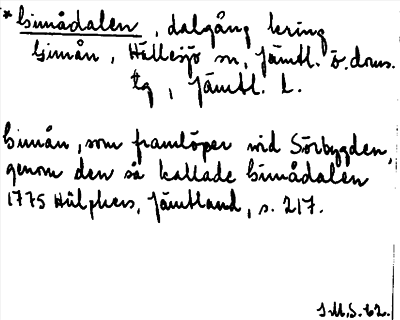 * Gimådalen, dalgång kring
Gimån, Hällesjö sn, Jämtl. ö. doms.
tg, Jämtl. L.
Gimån, som framlöper wid Sörbygden,
genom den så kallade Gimådalen
1775 Hülphers, Jämtland, s. 217.
J.M.S. 62.